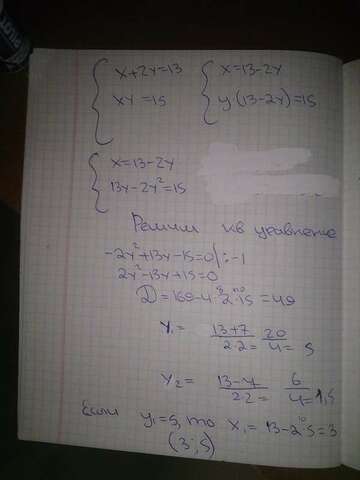 x+2y=13 x=13-2y
xy=15 y·(13-2y)=15
x=13-2y
13y-2y²=15
Решим кв уравнение
-2y²+13y-15=0|:-1
2y²-13y+15=0
D=169-4·2·15=49
y₁= 13+7/2·2= 20/4= 5
y₂= 13-7/2·2= 6/4=1,5
Если y₁=5, то x₁=13-2·5=3
(3;5)